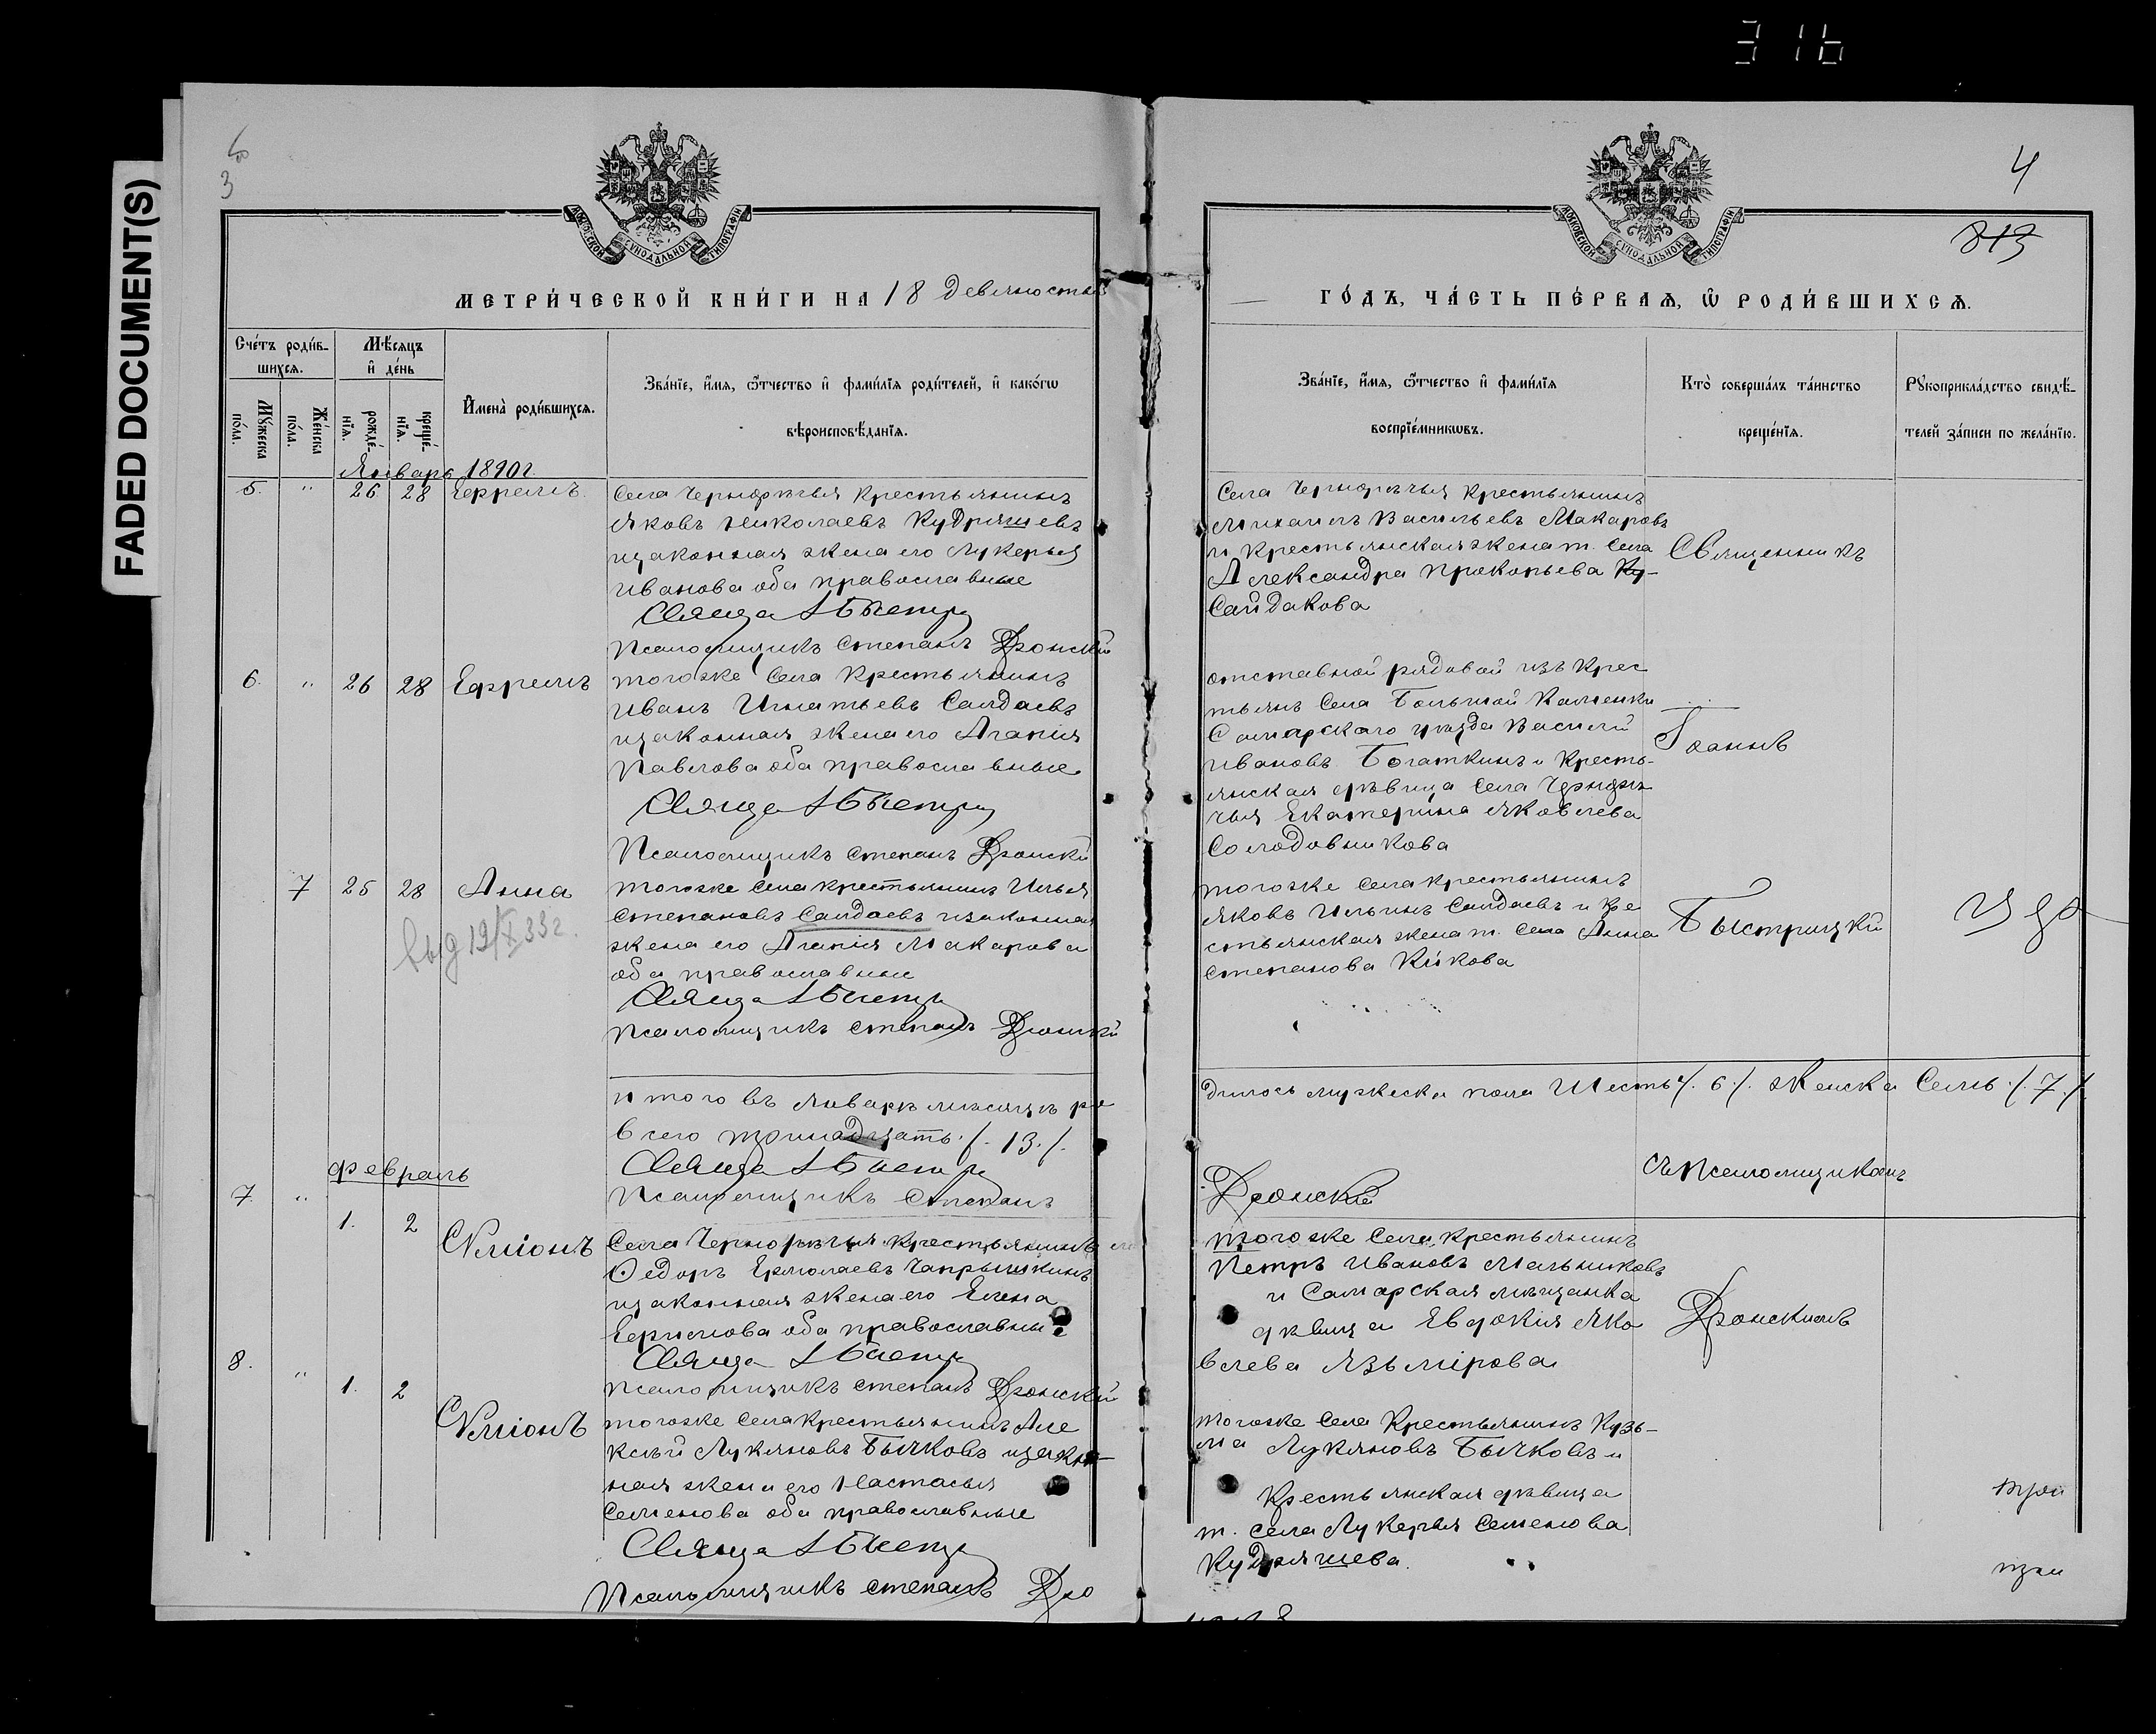 316
FADED DOCUMENT(S)
6
3
МОСКОВСКОЙ СѴНОДАЛЬНОЙ ТИПОГРАФІИ
МЕТРИ́ЧЕСКОЙ КНИ́ГИ НА 18 девяностый
Сче́тъ роди́в-
шихсѧ.
Мѣ́сяцъ
и҆ де́нь
И҆мена̀ роди́вшихсѧ.
Зва́нїе, и҆́мѧ, ѻ҆́тчество и҆ фами́лїѧ роди́телей, и҆ како́гѡ
вѣроисповѣ́данїѧ.
Мꙋ́жеска по́ла.
Же́нска по́ла.
рожде́-нїѧ.
креще́-нїѧ.
Январь 1890 г.
5. " 26 28 Ефремъ.
Села Чернорѣчья крестьянинъ
Яковъ Николаевъ Кудряшевъ
и законная жена его Лукерья
Иванова оба православные
Псаломщикъ Степанъ Дронскій
6. " 26 28 Ефремъ
тогоже села крестьянинъ
Иванъ Игнатьевъ Салдаевъ
и законная жена его Агапія
Павлова оба православные
Псаломщикъ Степанъ Дронскій
7 25 28 Анна
выд 19/X 33 г.
тогоже села крестьянинъ Илья
Степановъ Салдаевъ и законная
жена его Агапія Макарова
оба православные
Псаломщикъ Степанъ Дронскій
Итого въ январѣ мѣсяцѣ ро
всего тринадцать ./. 13 ./.
февраль
Псаломщикъ Степанъ
7. " 1. 2 Сѵміонъ
Села Чернорѣчья крестьянинъ
Ѳедоръ Ермолаевъ Чапрышкинъ
и законная жена его Елена
Ефимова оба православные
Псаломщикъ Степанъ Дронскій
8. " 1. 2 Сѵміонъ
тогоже села крестьянинъ Але
ксѣй Лукяновъ Бычковъ и закон-
ная жена его Настасья
Семенова оба православные
Псаломщикъ Степанъ Дро
4
813
МОСКОВСКОЙ СѴНОДАЛЬНОЙ ТИПОГРАФІИ
ГО́ДЪ, ЧА́СТЬ ПЕ́РВАѦ, Ѡ҆ РОДИ́ВШИХСѦ.
Зва́нїе, и҆́мѧ, ѻ҆́тчество и҆ фами́лїѧ
воспрїе́мникѡвъ.
Кто̀ соверша́лъ та́инство
креще́нїѧ.
Рꙋкоприкла́дство свидѣ́-
телей за́писи по жела́нїю.
Села Чернорѣчья крестьянинъ
Михаилъ Васильевъ Макаровъ
и крестьянская жена т. села
Александра Прокопьева Ку-
Сайдакова
Священникъ
отставной рядовой изъ крес
тьянъ села Большой Каменки
Самарского уѣзда Василій
Ивановъ Богаткинъ и кресть-
янская дѣвица села Чернорѣ
чья Екатерина Яковлева
Солодовникова
Іоаннъ
тогоже села крестьянинъ
Яковъ Ильинъ Салдаевъ и кре
стьянская жена т. села Анна
Степанова Кикова
Быстрицкій
дилось мужеска пола шесть ./. 6 ./. женска семь ./. 7 ./.
Дронскій
съ псаломщикомъ
тогоже села, крестьянинъ
Петръ Ивановъ Мальниковъ
и Самарская мѣщанка
дѣвица Евдокія Яко
влева
Дронскимъ
тогоже села крестьянинъ Кузь-
ма Лукяновъ Бычковъ и
крестьянская дѣвица
т. села Лукерья Семенова
Кудряшева.